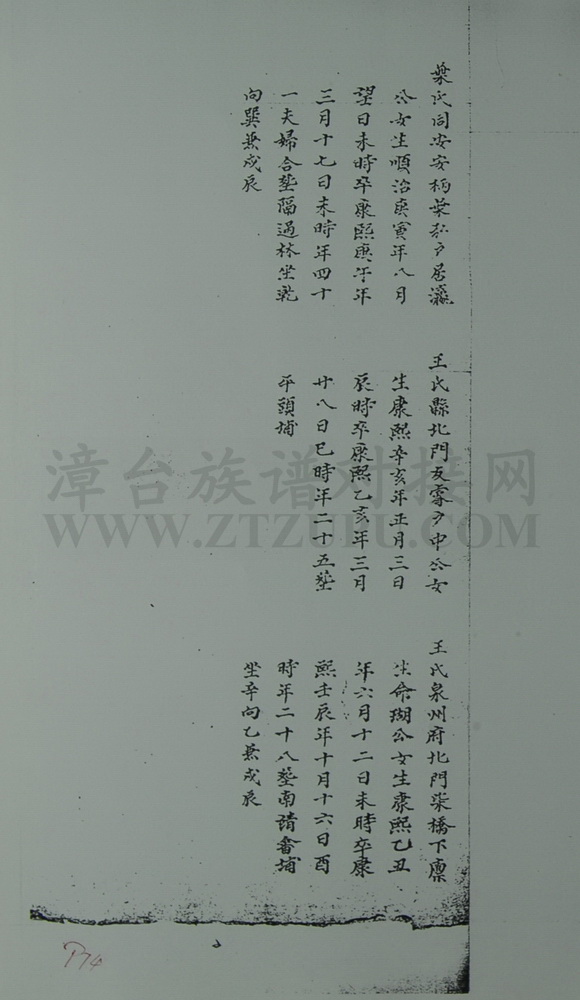 葉氏同安安柄葉弘戶居瀛
公女生順治庚寅年八月
望日未時卒康熙庚午年
三月十七日未時年四十
一夫婦合塟隔過林坐乾
向巽兼戍辰
王氏縣北門友霖戶中公女
生康熙辛亥年正月三日
辰時卒康熙乙亥年三月
廿八日巳時年二十五塟
平頭埔
王氏泉州府北門柴橋下廪
生命瑚公女生康熙乙丑
年六月十二日未時卒康
熙壬辰年十月十六日酉
時年二十八塟南請畬埔
坐辛向乙兼戍辰
漳台族谱对接网
WWW.ZTZUPU.COM
P74